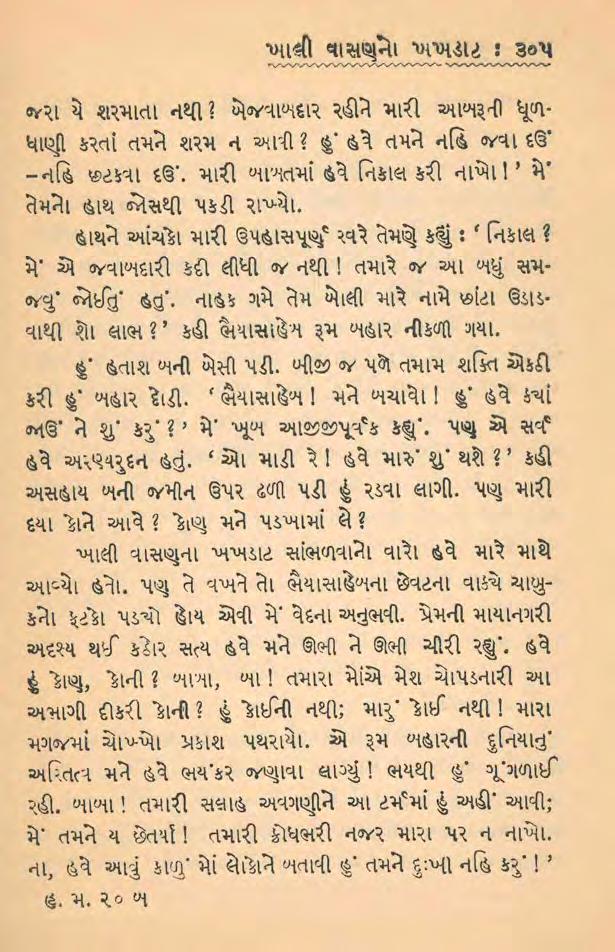 ખાલી વાસણનો ખખડાટ : ૩૦૫
જરા યે શરમાતા નથી? બેજવાબદાર રહીને મારી આબરૂની ધૂળ-
ધાણી કરતાં તમને શરમ ન આવી? હું હવે તમને નહિ જવા દઉં
–નહિ છટકવા દઉં. મારી બાબતમાં હવે નિકાલ કરી નાખો!’ મેં
તેમનો હાથ જોસથી પકડી રાખ્યો.
હાથને આંચકો મારી ઉપહાસપૂર્ણ સ્વરે તેમણે કહ્યું : ‘નિકાલ?
મેં એ જવાબદારી કદી લીધી જ નથી! તમારે જ આ બધું સમ-
જવું જોઈતું હતું. નાહક ગમે તેમ બોલી મારે નામે છાંટા ઉડાડ-
વાથી શો લાભ?’ કહી ભૈયાસાહેબ રૂમ બહાર નીકળી ગયા.
હું હતાશ બની બેસી પડી. બીજી જ પળે તમામ શક્તિ એકઠી
કરી હું બહાર દોડી. ‘ભૈયાસાહેબ! મને બચાવો! હું હવે ક્યાં
જાઉં ને શું કરું?’ મેં ખૂબ આજીજીપૂર્વક કહ્યું. પણ એ સર્વ
હવે અરણ્યરુદન હતું. ‘ઓ માડી રે! હવે મારું શું થશે?’ કહી
અસહાય બની જમીન ઉપર ઢળી પડી હું રડવા લાગી. પણ મારી
દયા કોને આવે? કોણ મને પડખામાં લે?
ખાલી વાસણના ખખડાટ સાંભળવાનો વારો હવે મારે માથે
આવ્યો હતો. પણ તે વખને તો ભૈયાસાહેબના છેવટના વાક્યે ચાબુ-
કનો ફટકો પડ્યો હોય એવી મેં વેદના અનુભવી. પ્રેમની માયાનગરી
અદૃશ્ય થઈ કઠોર સત્ય હવે મને ઊભી ને ઊભી ચીરી રહ્યું. હવે
હું કોણ, કોની? બાબા, બા! તમારા મોંએ મેશ ચોપડનારી આ
અભાગી દીકરી કોની? હું કોઈની નથી; મારું કોઈ નથી! મારા
મગજમાં ચોખ્ખો પ્રકાશ પથરાયો. એ રૂમ બહારની દુનિયાનું
અસ્તિત્વ મને હવે ભયંકર જણાવા લાગ્યું! ભયથી હું ગૂંગળાઈ
રહી. બાબા! તમારી સલાહ અવગણીને આ ટર્મમાં હું અહીં આવી;
મેં તમને ય છેતર્યા! તમારી ક્રોધભરી નજર મારા પર ન નાખો.
ના, હવે આવું કાળું મોં લોકોને બતાવી હું તમને દુઃખી નહિ કરું!’
હ. મ. ૨૦ બ